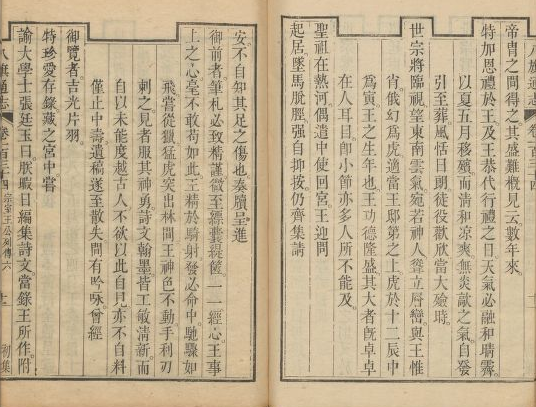 帝胄之間得之其盛難概見云數年來
特加恩禮於王及王恭代行禮之日天氣必融和晴霽
以夏五月移殯而清和涼爽無炎歊之氣自發
引至葬風恬日朗徒役歡欣當大殮時
世宗將臨視望東南雲氣宛若神人聳立曆巒與王惟
肖俄幻爲虎適當王邸第之上虎於十二辰中
爲寅王之生年也王功德隆盛其大者旣卓卓
在人耳目卽小節亦多人所不能及
聖祖在熱河偶遣中使回宮王迎問
起居墜馬肱脛强自抑按仍齊集請
安不自知其足之傷也奏牘呈進
御前者筆札必致精謹微至縹囊緹篋一一經心王事
上之心毫不敢苟如此王精於騎射發必命中馳驟如
飛嘗從獵猛虎突出林間王神色不動手利刃
刺之見者服其神勇詩文翰墨皆工敏清新而
自以未能度越古人不欲以此自見亦不自料
僅止中壽遺稿遂至散失間有吟咏曾經
御覽者吉光片羽
特珍愛存錄藏之宮中嘗
諭大學士張廷玉曰朕暇日編集詩文當錄王所作附
八旗通志
卷一百三十四
宗室王公列傳六
十二
初集
八旗通志
卷一百三十四